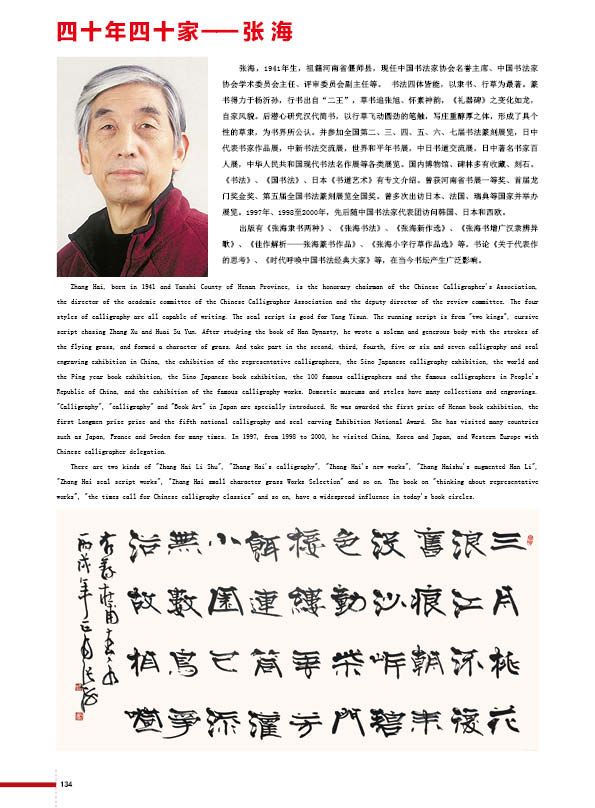 四十年四十家——张 海
张海，1941年生，祖籍河南省偃师县，现任中国书法家协会名誉主席、中国书法家
协会学术委员会主任、评审委员会副主任等。 书法四体皆能，以隶书、行草为最著。篆
书得力于杨沂孙，行书出自“二王”，草书追张旭、怀素神韵，《礼器碑》之变化如龙，
自家风貌。后潜心研究汉代简书，以行草飞动圆劲的笔触，写庄重醇厚之体，形成了具个
性的草隶，为书界所公认。并参加全国第二、三、四、五、六、七届书法篆刻展览，日中
代表书家作品展，中新书法交流展，世界和平年书展，中日书道交流展，日中著名书家百
人展，中华人民共和国现代书法名作展等各类展览。国内博物馆、碑林多有收藏、刻石。
《书法》、《国书法》、日本《书道艺术》有专文介绍。曾获河南省书展一等奖、首届龙
门奖金奖、第五届全国书法篆刻展览全国奖。曾多次出访日本、法国、瑞典等国家并举办
展览。1997年、1998至2000年，先后随中国书法家代表团访问韩国、日本和西欧。
出版有《张海隶书两种》、《张海书法》、《张海新作选》、《张海书增广汉隶辨异
歌》、《佳作解析——张海篆书作品》、《张海小字行草作品选》等。书论《关于代表作
的思考》、《时代呼唤中国书法经典大家》等，在当今书坛产生广泛影响。
Zhang Hai, born in 1941 and Yanshi County of Henan Province, is the honorary chairman of the Chinese Calligrapher's Association,
the director of the academic committee of the Chinese Calligrapher Association and the deputy director of the review committee. The four
styles of calligraphy are all capable of writing. The seal script is good for Yang Yisun. The running script is from "two kings", cursive
script chasing Zhang Xu and Huai Su Yun. After studying the book of Han Dynasty, he wrote a solemn and generous body with the strokes of
the flying grass, and formed a character of grass. And take part in the second, third, fourth, five or six and seven calligraphy and seal
engraving exhibition in China, the exhibition of the representative calligraphers, the Sino Japanese calligraphy exhibition, the world and
the Ping year book exhibition, the Sino Japanese book exhibition, the 100 famous calligraphers and the famous calligraphers in People's
Republic of China, and the exhibition of the famous calligraphy works. Domestic museums and steles have many collections and engravings.
"Calligraphy", "calligraphy" and "Book Art" in Japan are specially introduced. He was awarded the first prize of Henan book exhibition, the
first Longmen prize prize and the fifth national calligraphy and seal carving Exhibition National Award. She has visited many countries
such as Japan, France and Sweden for many times. In 1997, from 1998 to 2000, he visited China, Korea and Japan, and Western Europe with
Chinese calligrapher delegation.
There are two kinds of "Zhang Hai Li Shu", "Zhang Hai's calligraphy", "Zhang Hai's new works", "Zhang Haishu's augmented Han Li",
"Zhang Hai seal script works", "Zhang Hai small character grass Works Selection" and so on. The book on "thinking about representative
works", "the times call for Chinese calligraphy classics" and so on, have a widespread influence in today's book circles.
三月桃花
浪江流復
舊痕朝來
没沙岸碧
色動柴門
接縷垂芳
餌連筒灌
小園已添
無數鳥爭
浴故相喧
丙戌年
134